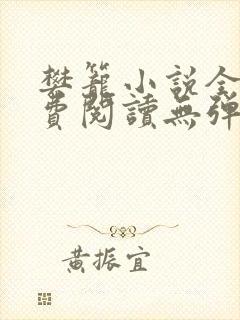 樊籠小說全
費閱讀無彈
黃振宜